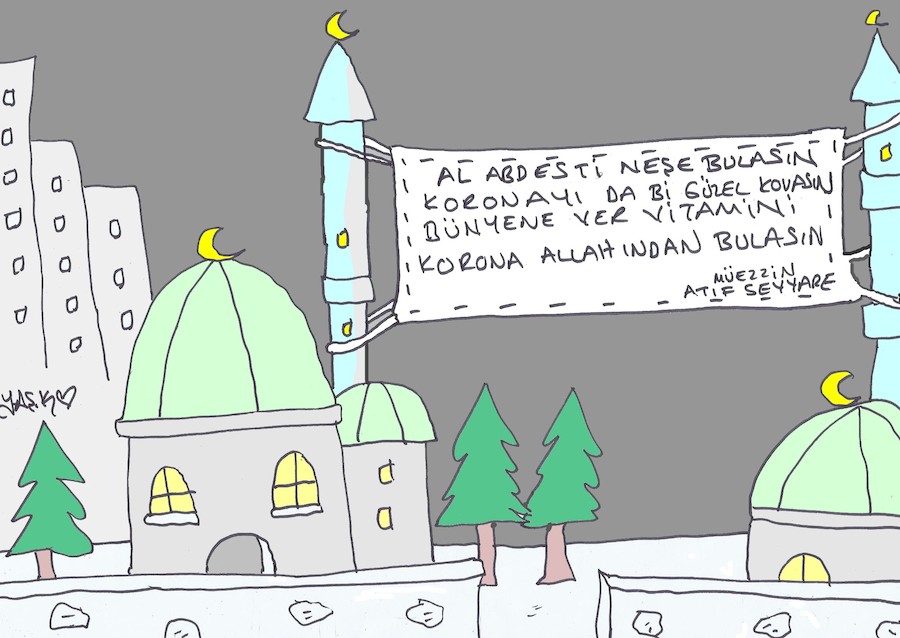 AL ABDESTİ NEŞE BULASIN
KORONAYI DA Bİ GÜZEL KOVASIN
BÜNYENE VER VİTAMİNİ
KORONA ALLAHINDAN BULASIN
MÜEZZİN
ATIF SEYYARE